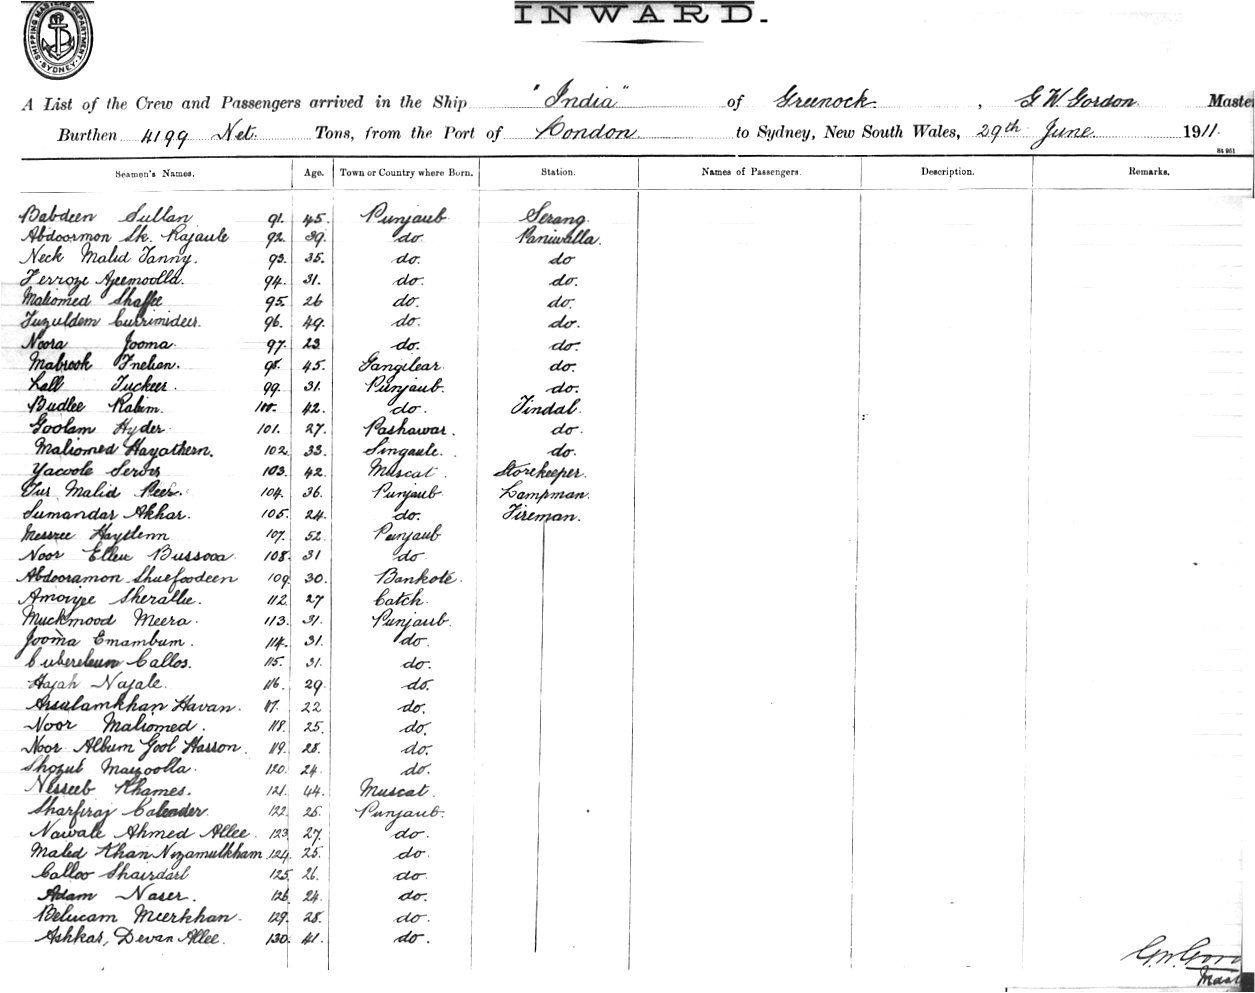 SHIPPING MASTERS DEPARTMENT SYDNEY
INWARD.
A List of the Crew and Passengers arrived in the Ship "India" of Greenock, G W Gordon Maste
Burthen 4199 Net Tons, from the Port of London to Sydney, New South Wales, 29th June 1911.
Seamen's Names. Age. Town or Country where Born. Station. Names of Passengers. Description. Remarks.
Babdeen Sullan 91. 45. Punjaub Serang
Abdoormon Sk. Rajaule 92. 39. do Paniwalla.
Neck Malid Janny. 93. 35. do. do
Ferroze Ajeemoolla. 94. 31. do. do.
Mahomed Shaffee 95. 26 do. do.
96. 49. do. do.
Noora Jooma. 97. 23 do. do.
Mabrook 98. 45. do.
Lall Tuckeer. 99. 31. Punjaub. do.
Budlee Rahim. 100. 42. do. Tindal.
Goolam Hyder 101. 27. Pashawar. do.
Mahomed Hayathern. 102 33. Singaule. do.
Yacoole 103. 42. Muscat. Storekeeper.
Malid Peer. 104. 36. Punjaub Lampman.
Sumandar Akhar. 105. 24. do. Fireman.
107. 52 Punjaub
Noor Ellen Bussooa 108. 31 do
Abdooramon Shuefoodeen 109 30. Bankote.
Amoiyee Sherallie. 112 27 Catch
Muckmood Meera. 113. 31. Punjaub.
Jooma Emambum. 114. 31. do.
Callos. 115. 31. do.
Hajah Najale. 116. 29 do.
Arsalamkhan Havan. 117. 22 do.
Noor Mahomed. 118. 25. do.
Noor Album Gool Hasson. 119. 28. do.
Shozul 120. 24. do.
Nesseeb Khames. 121. 44. Muscat.
Sharfiraj Calender 122. 25. Punjaub.
Nawale Ahmed Allee. 123 27. do.
Maled Khan Nizamulkham 124. 25. do.
Calloo Shairdarl 125 26. do
Adam Naser. 126 24. do.
Belucam Meerkhan. 129. 28. do.
Ashkar, Devan Allee. 130. 41. do.
G.W. Gord
Mast